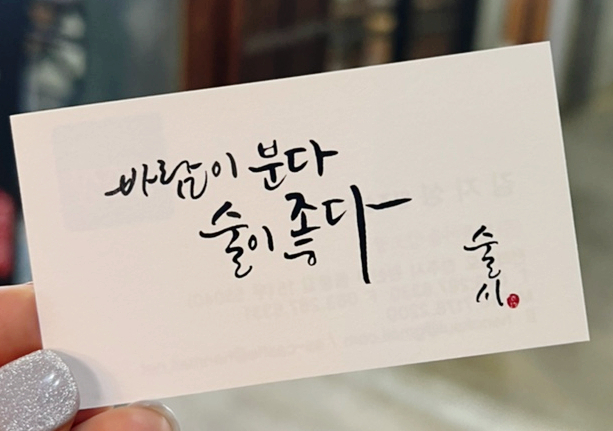 바람이 분다
술이 좋다
술
시